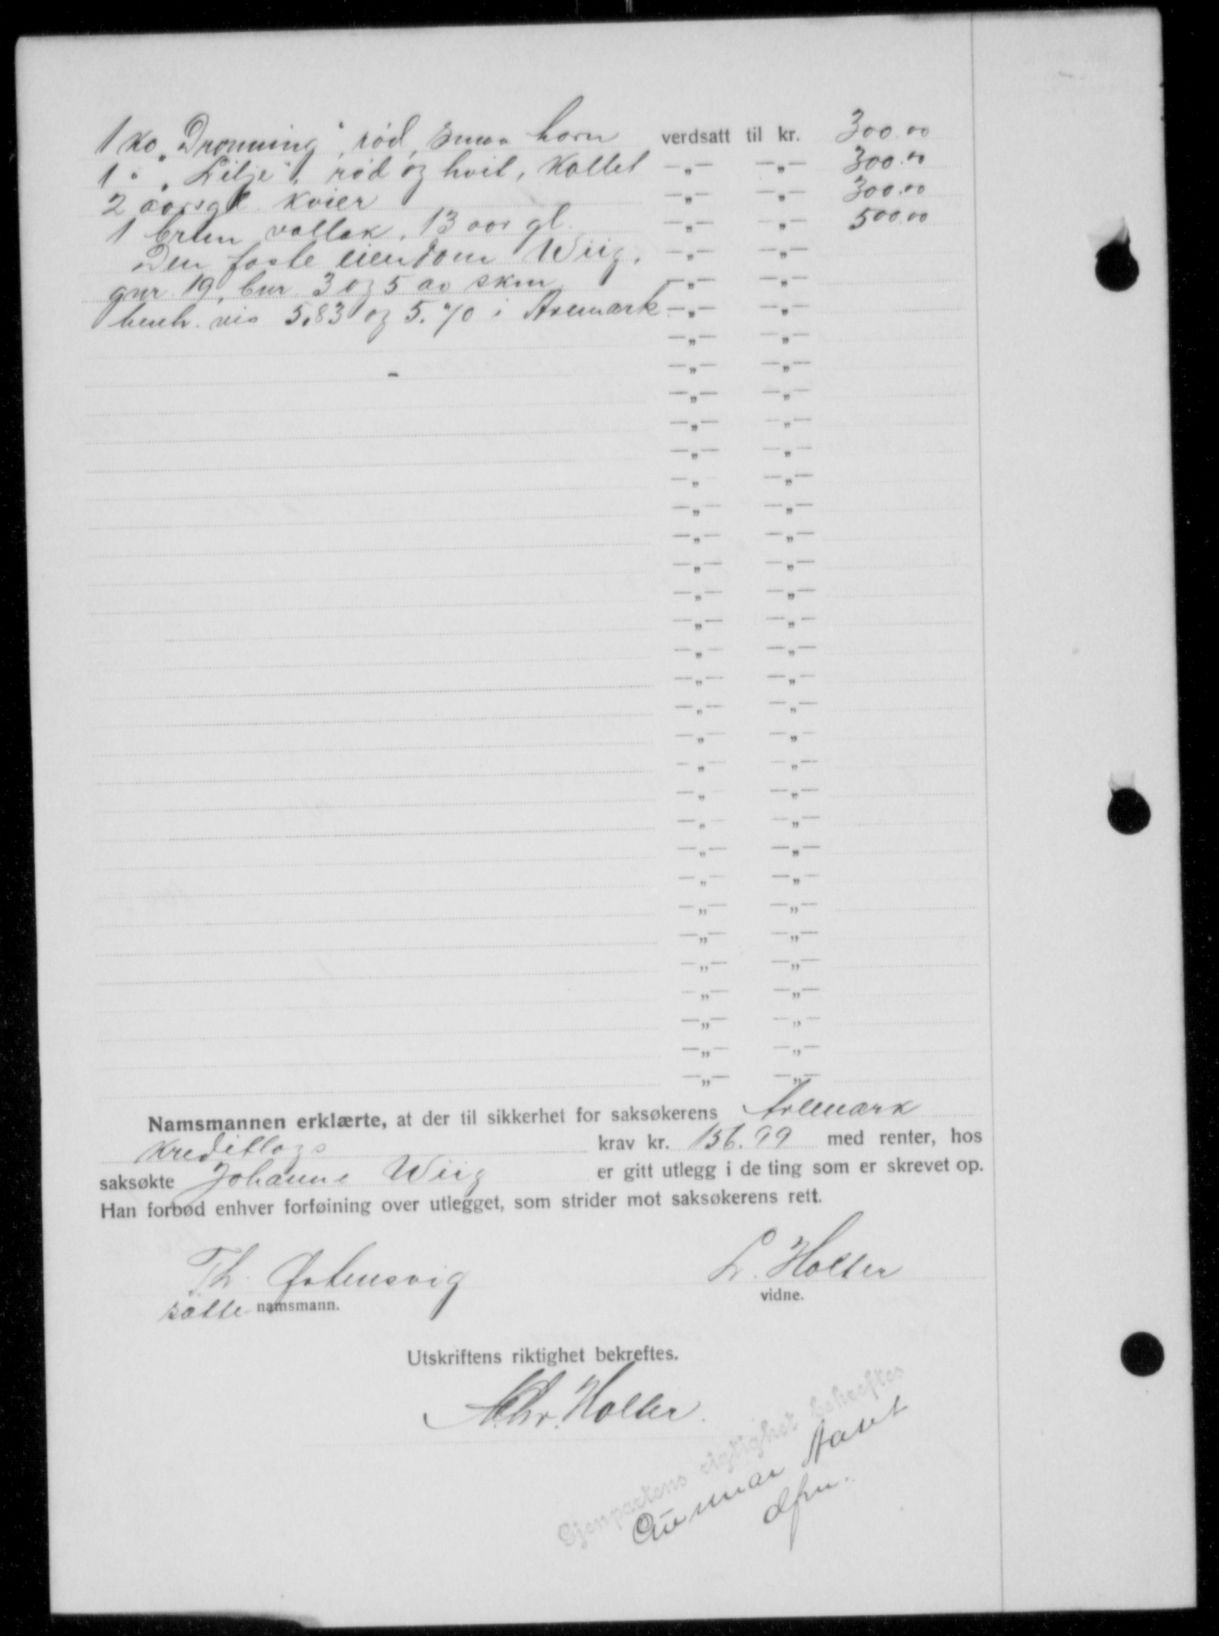 1 ko „Dronning“, rød, smaa horn verdsatt til kr. 300.00
1 " „Lilje“, rød og hvit, kollet —„— —„— 300.00
2 aarsgl. kvier —„— —„— 300.00
1 brun vallak, 13 aar gl. —„— —„— 500.00
Den faste eiendom Wiig, —„— —„—
gnr 19, bnr 3 og 5 av skm —„— —„—
henh. vis 5,83 og 5.70 i Aremark —„— —„—
Namsmannen erklærte, at der til sikkerhet for saksøkerens Aremark
kreditlags krav kr. 156.99 med renter, hos
saksøkte Johanne Wiig er gitt utlegg i de ting som er skrevet op.
Han forbød enhver forføining over utlegget, som strider mot saksøkerens rett.
Th. Østensvig L. Holter
satte namsmann. vidne.
Utskriftens riktighet bekreftes.
Chr. Holter.
Gjenpartens rigtighet bekreftes
Gunnar